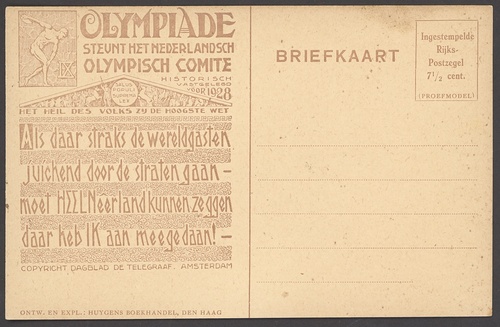 OLYMPIADE
STEUNT HET NEDERLANDSCH
OLYMPISCH COMITE
HISTORISCH
VASTGELEGD
VOOR 1928
SALUS
POPULI
SUPREMA
LEX
HET HEIL DES VOLKS ZY DE HOOGSTE WET
Als daar straks de wereldgasten
juichend door de straten gaan –
moet HEEL Neerland kunnen zeggen
daar heb IK aan meegedaan! –
COPYRIGHT DAGBLAD DE TELEGRAAF. AMSTERDAM
ONTW. EN EXPL.: HUYGENS BOEKHANDEL, DEN HAAG
BRIEFKAART
Ingestempelde
Rijks-
Postzegel
7½ cent.
(PROEFMODEL)